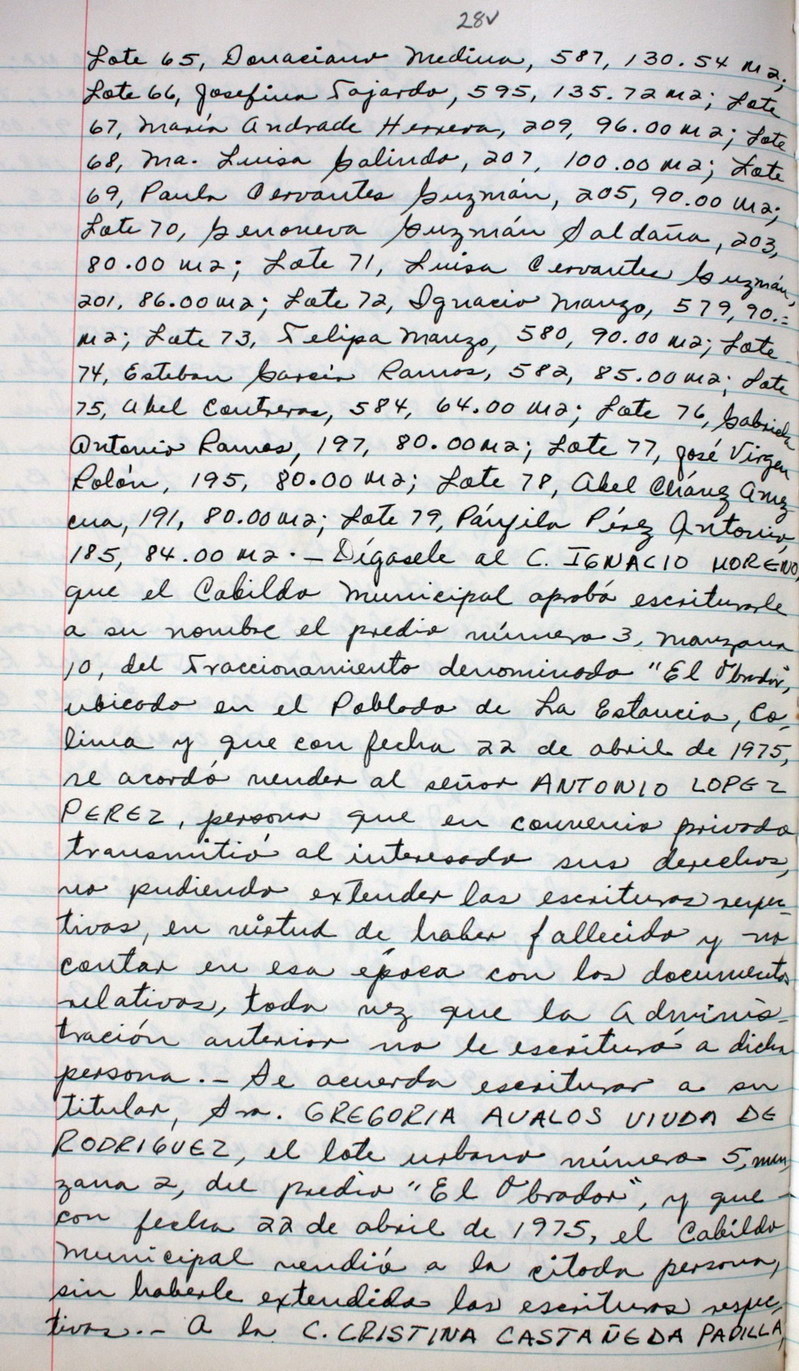 28v
Lote 65, Donaciano Medina, 587, 130.54 m2;
Lote 66, Josefina Fajardo, 595, 135.72 m2; Lote
67, María Andrade Herrera, 209, 96.00 m2; Lote
68, Ma. Luisa Galindo, 207, 100.00 m2; Lote
69, Paula Cervantes Guzmán, 205, 90.00 m2;
Lote 70, Genoveva Guzmán Saldaña, 203,
80.00 m2; Lote 71, Luisa Cervantes Guzmán,
201, 86.00 m2; Lote 72, Ignacio Manzo, 579, 90.=
m2; Lote 73, Felipa Manzo, 580, 90.00 m2; Lote
74, Esteban García Ramos, 582, 85.00 m2; Lote
75, Abel Contreras, 584, 64.00 m2; Lote 76, Gabriela
Antonio Ramos, 197, 80.00 m2; Lote 77, José Virgen
Rolón, 195, 80.00 m2; Lote 78, Abel Chávez Amez
cua, 191, 80.00 m2; Lote 79, Pánfila Pérez Antonio,
185, 84.00 m2.- Dígasele al C. IGNACIO MORENO,
que el Cabildo Municipal aprobó escriturarle
a su nombre el predio número 3, manzana
10, del Fraccionamiento denominado "El Obrador",
ubicado en el Poblado de La Estancia, Co-
lima y que con fecha 22 de abril de 1975,
se acordó vender al señor ANTONIO LOPEZ
PEREZ, persona que en convenio privado
transmitió al interesado sus derechos,
no pudiendo extender las escrituras respec-
tivas, en virtud de haber fallecido y no
contar en esa época con los documentos
relativos, toda vez que la Adminis-
tración anterior no le escrituró a dicha
persona.- Se acuerda escriturar a su
titular, Sra. GREGORIA AVALOS VIUDA DE
RODRIGUEZ, el lote urbano número 5, man
zana 2, del predio "El Obrador", y que -
con fecha 22 de abril de 1975, el Cabildo
Municipal vendió a la citada persona,
sin haberle extendido las escrituras respec-
tivas.- A la C. CRISTINA CASTAÑEDA PADILLA,